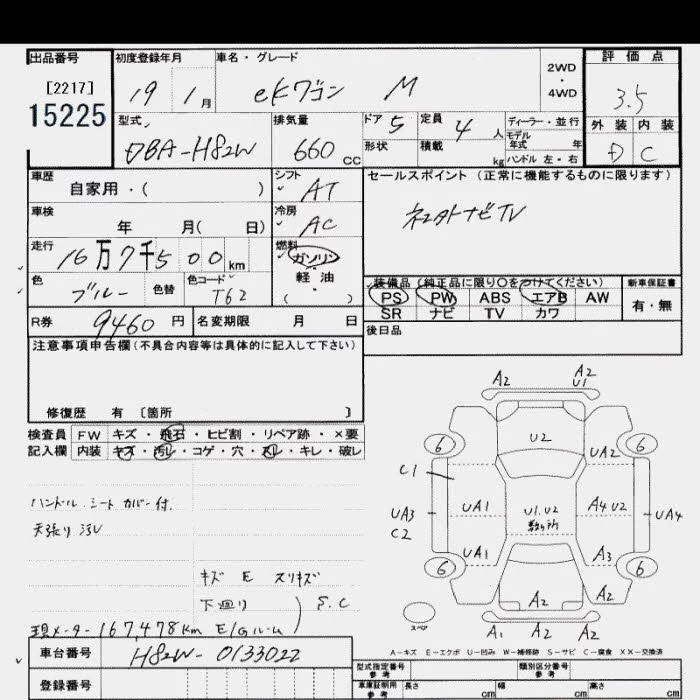 出品番号
[2217]
15225
初度登録年月
19 1月
車名・グレード
eKワゴン M
2WD
・
4WD
評価点
3.5
外装 内装
D C
型式
DBA-H82W
排気量
660 CC
ドア 5
形状
定員 4 人
積載 kg
ディーラー・並行
モデル
年式 年
ハンドル 左・右
車歴
自家用・( )
シフト
AT
セールスポイント (正常に機能するものに限ります)
車検
年 月( 日)
冷房
AC
走行
16万7千500km
燃料
ガソリン
軽油
( )
色
ブルー
色替
色コード
T62
装備品 (純正品に限り〇をつけてください)
PS PW ABS エアB AW
SR ナビ TV カワ
新車保証書
有・無
R券 9460円
名変期限 月 日
後日品
注意事項申告欄(不具合内容等は具体的に記入して下さい)
修復歴 有 [箇所 ]
検査員
記入欄
FW キズ・飛石・ヒビ割・リペア跡・×要
内装 キズ・汚レ・コゲ・穴・スレ・キレ・破レ
ハンドル シート カバー付.
天張り汚レ
キズ E スリキズ
下廻り
S.C
現メーター 167,478km E/Gルーム
A2
A2
U1
U2
6
6
UA2
C1
UA3
C2
UA1
U1.U2
A4 U2
UA4
UA1
A3
6
6
A2
A2
スペア
A1 A2 A2
A-キズ E-エクボ U-凹み W-補修跡 S-サビ C-腐食 XX-交換済
車台番号
H82W-0133022
登録番号
型式指定番号
参考
類別区分番号
参考
車庫証明用
参考
長さ cm
幅 cm
高さ cm